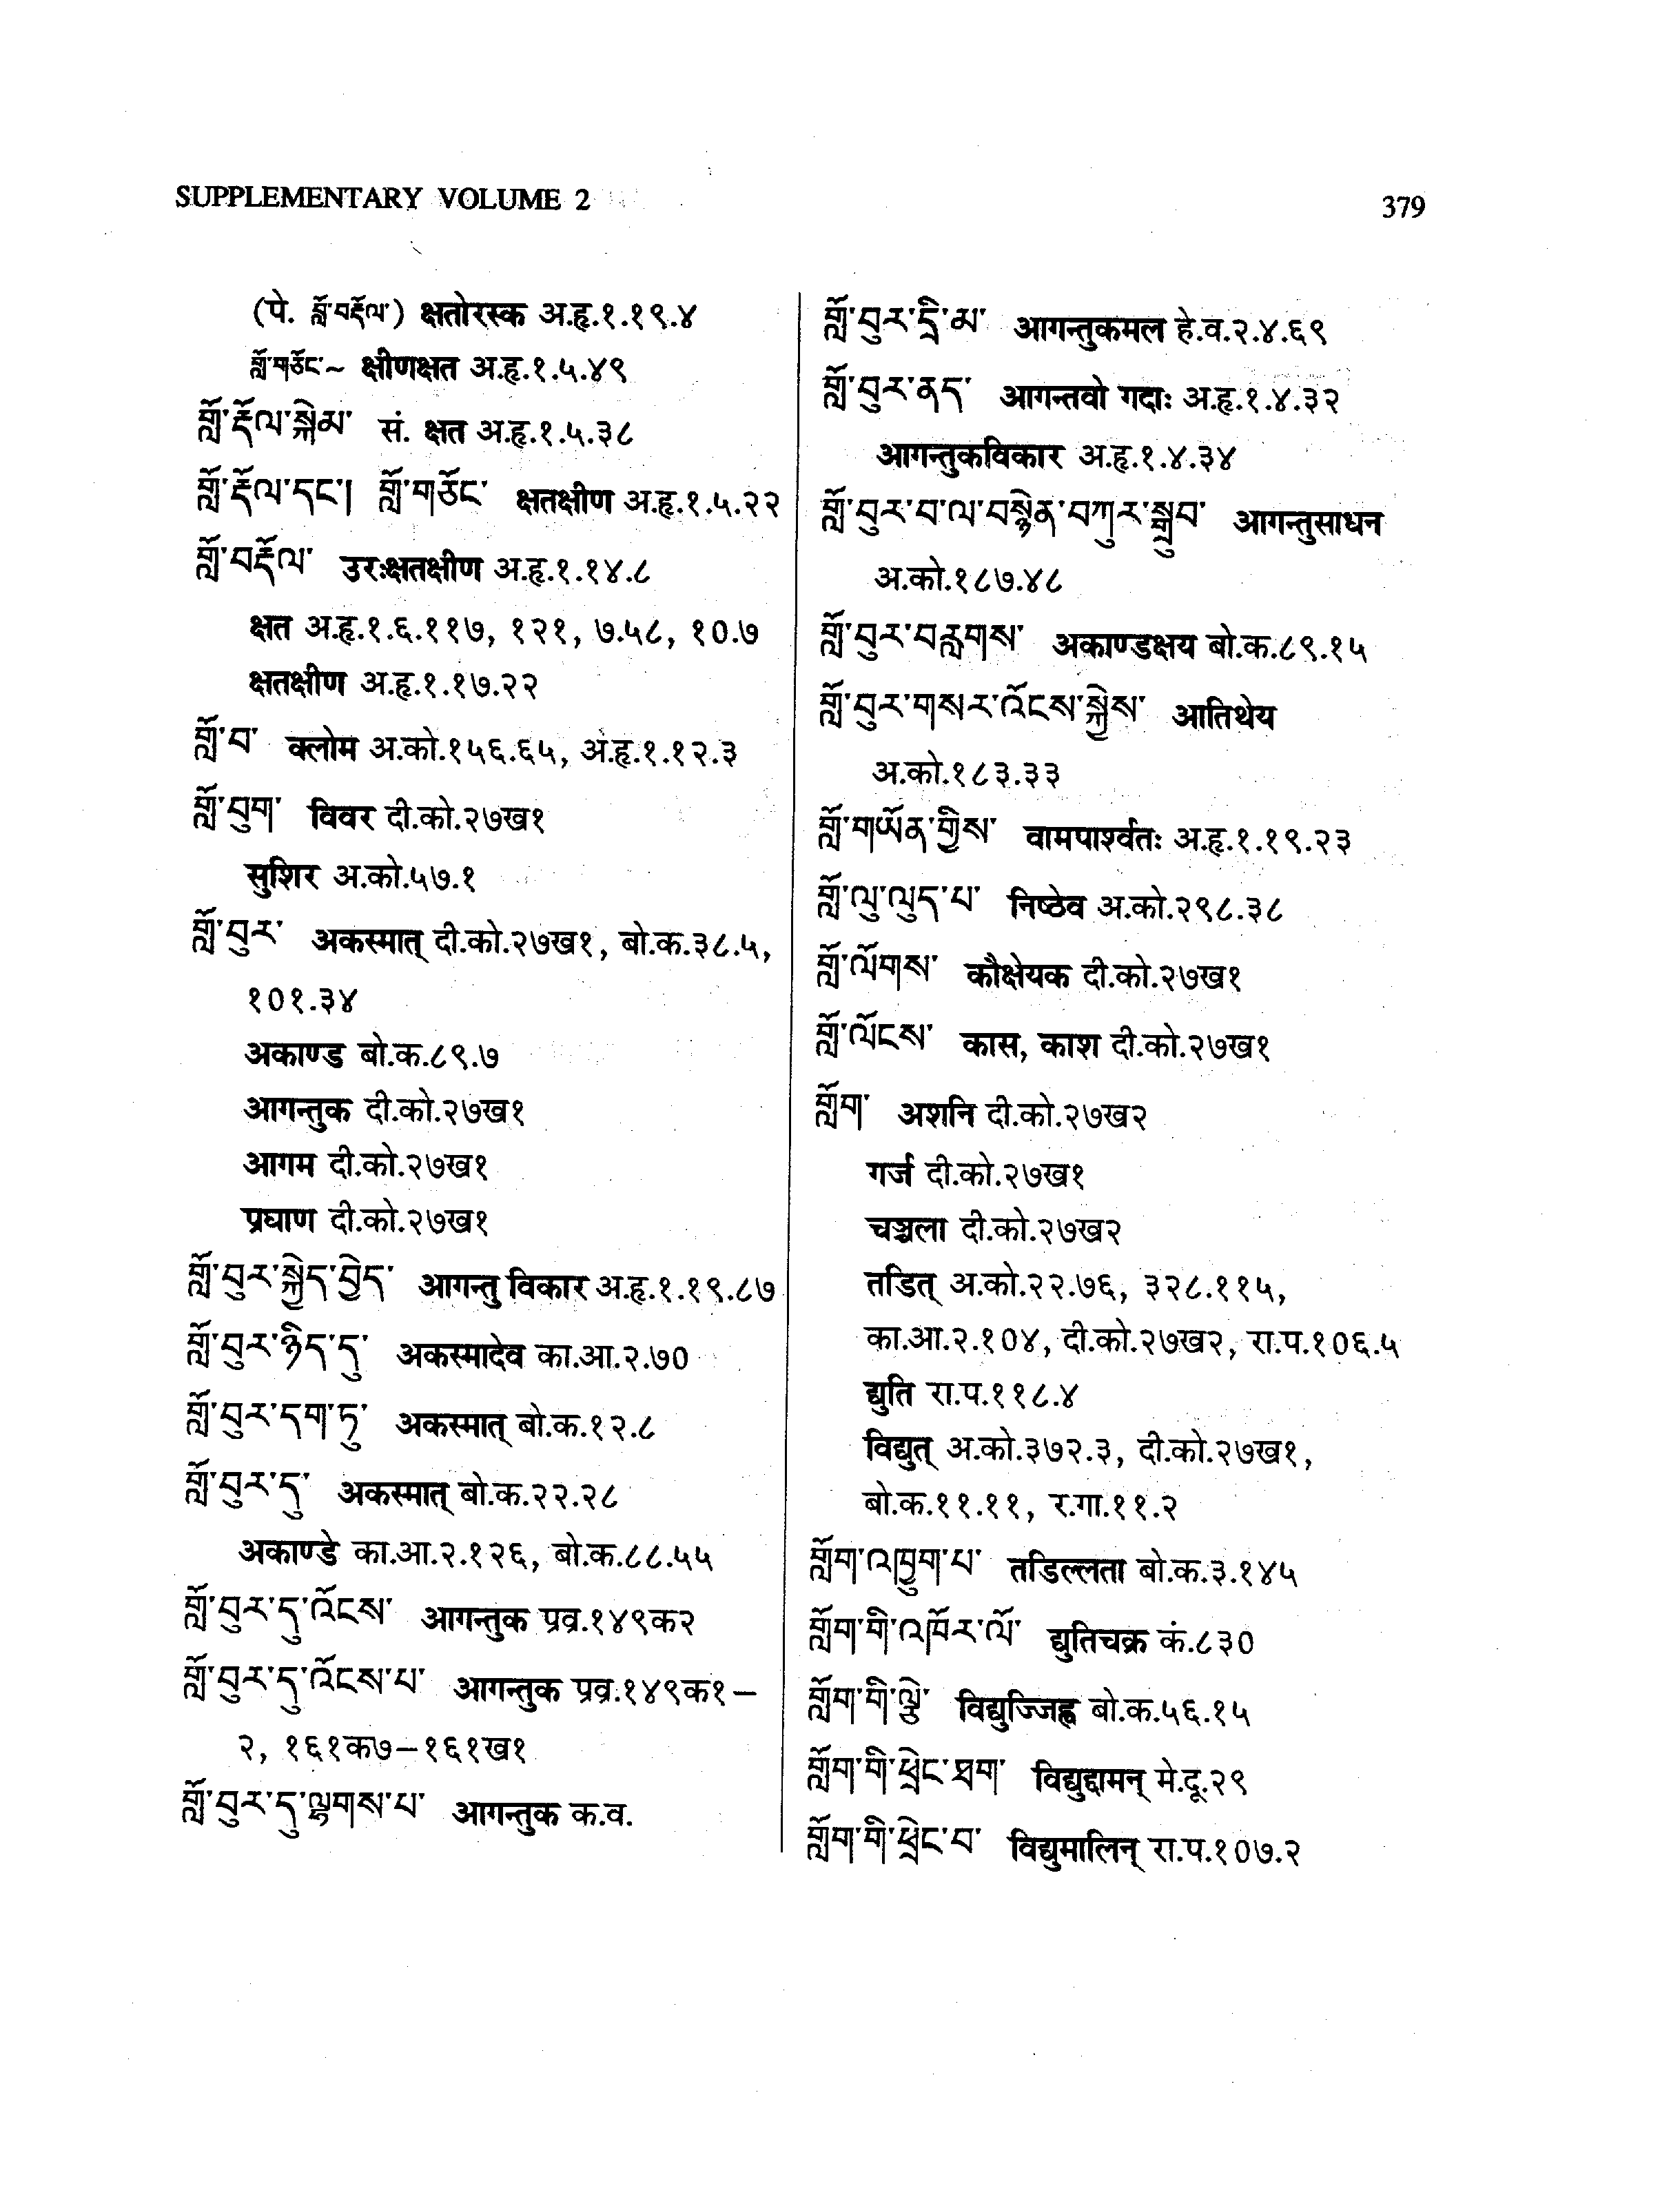 SUPPLEMENTARY VOLUME 2
379
(पे. གློ་བརྡོལ་) क्षतोरस्क अ.हृ.१.१९.४
གློ་གཅོང་~ क्षीणक्षत अ.हृ.१.५.४९
གློ་རྡོལ་སྐེམ་ सं. क्षत अ.हृ.१.५.३८
གློ་རྡོལ་དང་། གློ་གཅོང་ क्षतक्षीण अ.हृ.१.५.२२
གློ་བརྡོལ་ उरःक्षतक्षीण अ.हृ.१.१४.८
क्षत अ.हृ.१.६.११७, १२१, ७.५८, १०.७
क्षतक्षीण अ.हृ.१.१७.२२
གློ་བ་ क्लोम अ.को.१५६.६५, अ.हृ.१.१२.३
གློ་བུག་ विवर दी.को.२७ख१
सुशिर अ.को.५७.१
གློ་བུར་ अकस्मात् दी.को.२७ख१, बो.क.३८.५,
१०१.३४
अकाण्ड बो.क.८९.७
आगन्तुक दी.को.२७ख१
आगम दी.को.२७ख१
प्रघाण दी.को.२७ख१
གློ་བུར་སྐྱེད་བྱེད་ आगन्तु विकार अ.हृ.१.१९.८७
གློ་བུར་ཉིད་དུ་ अकस्मादेव का.आ.२.७०
གློ་བུར་དག་ཏུ་ अकस्मात् बो.क.१२.८
གློ་བུར་དུ་ अकस्मात् बो.क.२२.२८
अकाण्डे का.आ.२.१२६, बो.क.८८.५५
གློ་བུར་དུ་འོངས་ आगन्तुक प्रव्र.१४९क२
གློ་བུར་དུ་འོངས་པ་ आगन्तुक प्रव्र.१४९क१–
२, १६१क७–१६१ख१
གློ་བུར་དུ་ལྷགས་པ་ आगन्तुक क.व.
གློ་བུར་དྲི་མ་ आगन्तुकमल हे.व.२.४.६९
གློ་བུར་ནད་ आगन्तवो गदाः अ.हृ.१.४.३२
आगन्तुकविकार अ.हृ.१.४.३४
གློ་བུར་བ་ལ་བསྙེན་བཀུར་སྒྲུབ་ आगन्तुसाधन
अ.को.१८७.४८
གློ་བུར་བརླགས་ अकाण्डक्षय बो.क.८९.१५
གློ་བུར་གསར་འོངས་སྐྱེས་ आतिथेय
अ.को.१८३.३३
གློ་གཡོན་གྱིས་ वामपार्श्वतः अ.हृ.१.१९.२३
གློ་ལུ་ལུད་པ་ निष्ठेव अ.को.२९८.३८
གློ་ལོགས་ कौक्षेयक दी.को.२७ख१
གློ་ལོངས་ कास, काश दी.को.२७ख१
གློག་ अशनि दी.को.२७ख२
गर्ज दी.को.२७ख१
चञ्चला दी.को.२७ख२
तडित् अ.को.२२.७६, ३२८.११५,
का.आ.२.१०४, दी.को.२७ख२, रा.प.१०६.५
द्युति रा.प.११८.४
विद्युत् अ.को.३७२.३, दी.को.२७ख१,
बो.क.११.११, र.गा.११.२
གློག་འཁྱུག་པ་ तडिल्लता बो.क.३.१४५
གློག་གི་འཁོར་ལོ་ द्युतिचक्र कं.८३०
གློག་གི་ལྕེ་ विद्युज्जिह्व बो.क.५६.१५
གློག་གི་ཕྲེང་ཐག་ विद्युद्दामन् मे.दू.२९
གློག་གི་ཕྲེང་བ་ विद्युमालिन् रा.प.१०७.२